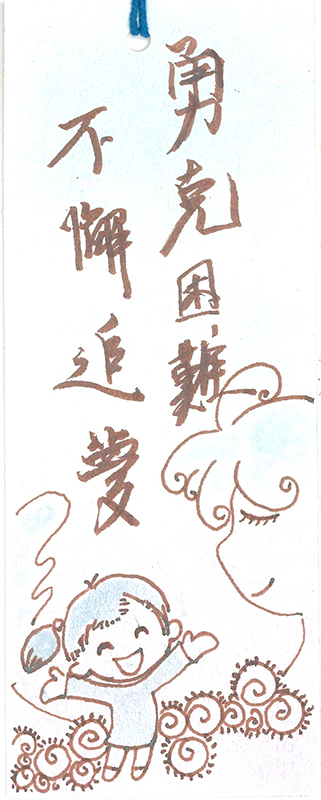 勇克困難
不懈追夢